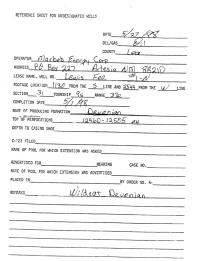 REFERENCE SHEET FOR UNDESIGNATED WELLS
DATE 5/27/98
OIL/GAS Oil
COUNTY Lea
OPERATOR Marbob Energy Corp
ADDRESS P.O. Box 227 Artesia NM 88210
LEASE NAME, WELL NO. Lewis Fee #1-N
FOOTAGE LOCATION 1130 FROM THE S LINE AND 2544 FROM THE W LINE
SECTION 31 TOWNSHIP 9S RANGE
COMPLETION DATE 5/1/98
NAME OF PRODUCING FORMATION Devonian
TOP OF PERFORATIONS 12540 - 12555
DEPTH TO CASING SHOE
C-123 FILED
NAME OF POOL FOR WHICH EXTENSION WAS ASKED
ADVERTISED FOR HEARING CASE NO.
NAME OF POOL FOR WHICH EXTENSION WAS ADVERTISED
PLACED IN BY ORDER NO. R-
REMARKS Wildcat Devonian